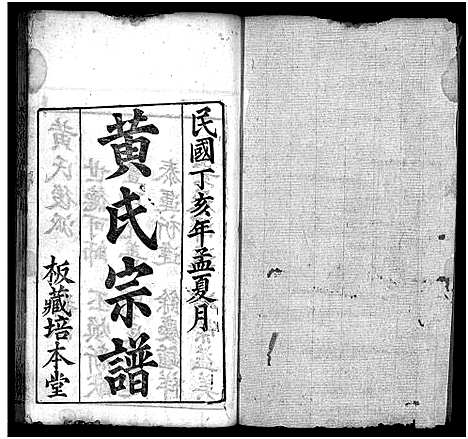 民國丁亥年孟夏月
黃氏宗譜
板藏培本堂